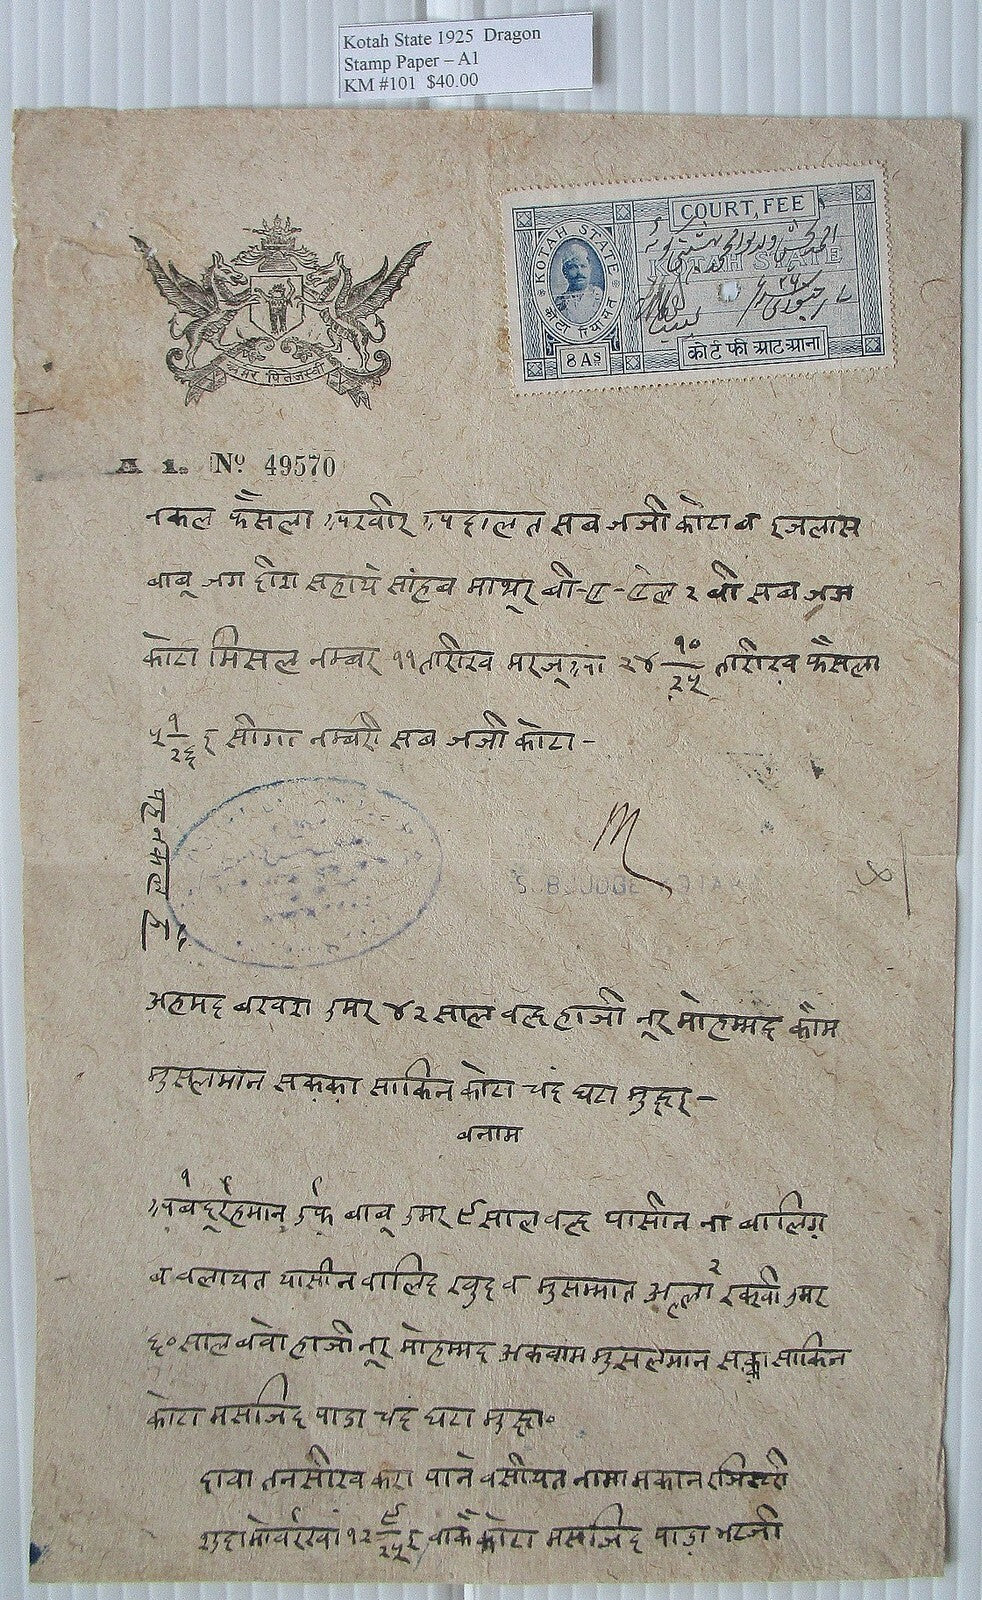 Kotah State 1925 Dragon
Stamp Paper – A1
KM #101 $40.00
COURT FEE
KOTAH STATE
KOTAH STATE
कोटा रियासत
8 AS
कोर्ट फी आठ आना
A 1. No 49570
नकल फैसला अदालत सब जजी कोटा ब इजलास
बाबू जगदीश सहाये सांहब माथूर बी-ए-ऐल २ बी सब जज
कोटा मिसल नम्बर ११ तारीख मरजूआ २४ १०/२५ तारीख़ फैसला
५ १/२६ ई सीगा नम्बरी सब जजी कोटा -
अहमद बखश उमर ४२ साल वल्द हाजी नूर मोहम्मद कौम
मुसलमान सक़्क़ा साकिन कोटा चंद घटा मुद्दई -
बनाम
१
अबदुर्रहमान उर्फ बाबू उमर ९ साल वल्द यासीन ना बालिग़
ब वलायत यासीन वालिद खुद व मुसम्मात अल्ला २ रक्खी उमर
६० साल बेवा हाजी नूर मोहम्मद अकवाम मुसलमान सक़्क़ा साकिन
कोटा मसजिद पाडा चंद घटा मुद्दा॰
दावा तनसीख करा पाने वसीयत नामा मकान रजिस्टरी
शुदा मोवर्रखा १२ ९/२५ ई वाके कोटा मसजिद पाड़ा भटजी